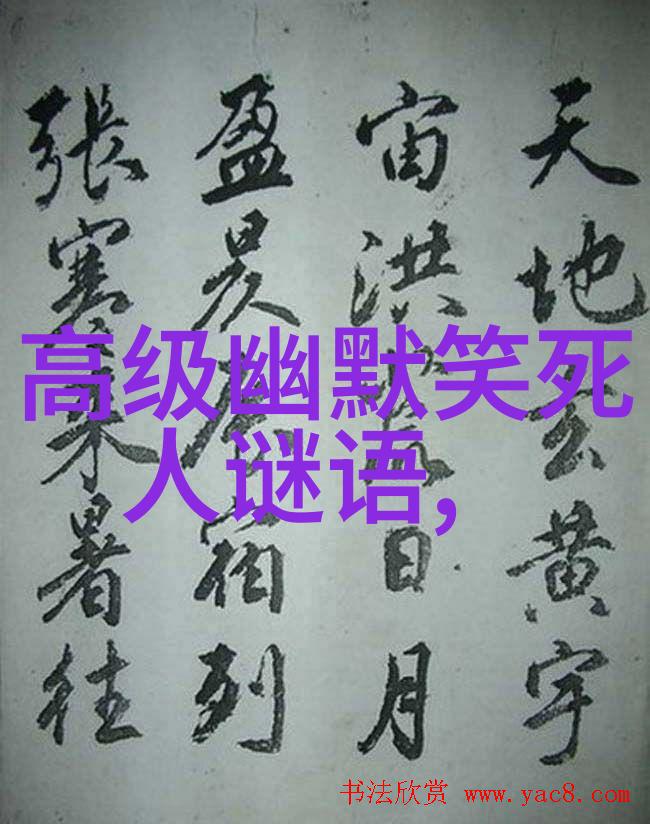 天地玄黄宇
宙洪荒日月
盈昃辰宿列
張寒来暑往
高级幽默笑死
人谜语,
书法欣赏 www.yac8.com